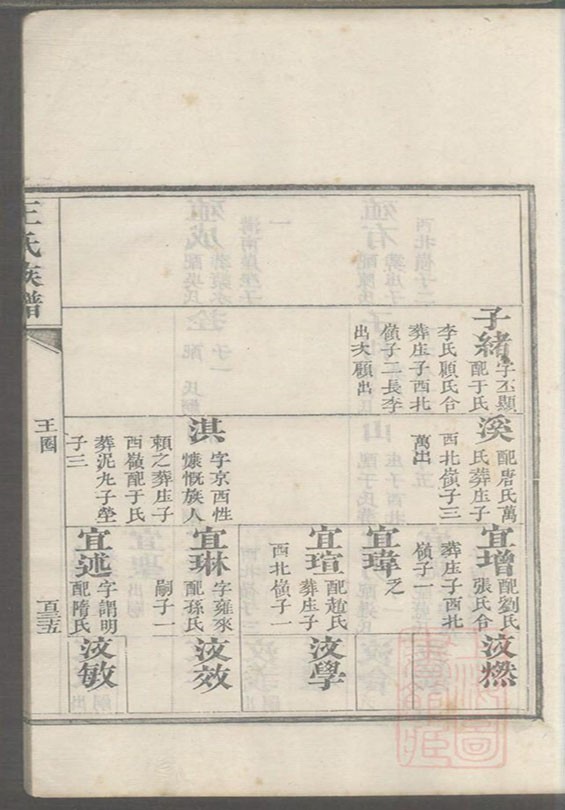 子緒
字丕顯
配于氏
李氏顧氏合
葬庄子西北
嶺子二長李
出次顧出
溪
配唐氏萬
氏葬庄子
西北嶺子三
萬出
洪
字京西性
慷慨族人
賴之葬庄子
西嶺配于氏
葬泥九子塋
子三
宜增
配劉氏
張氏合
葬庄子西北
嶺子一
宜瑋
之
宜瑄
配趙氏
葬庄子
西北嶺子一
宜琳
字雍來
配孫氏
嗣子一
宜述
字謂明
配隋氏
汝燃
汝學
汝效
汝敏
王氏族譜
王圈